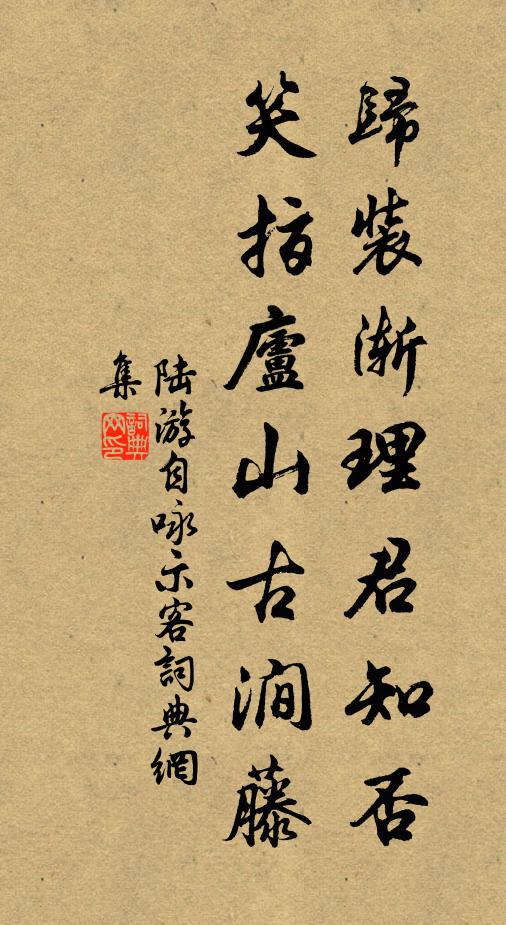 歸裝漸理君知否
笑指廬山古澗藤
陸游自咏示客詞典網
集
詞典
网印